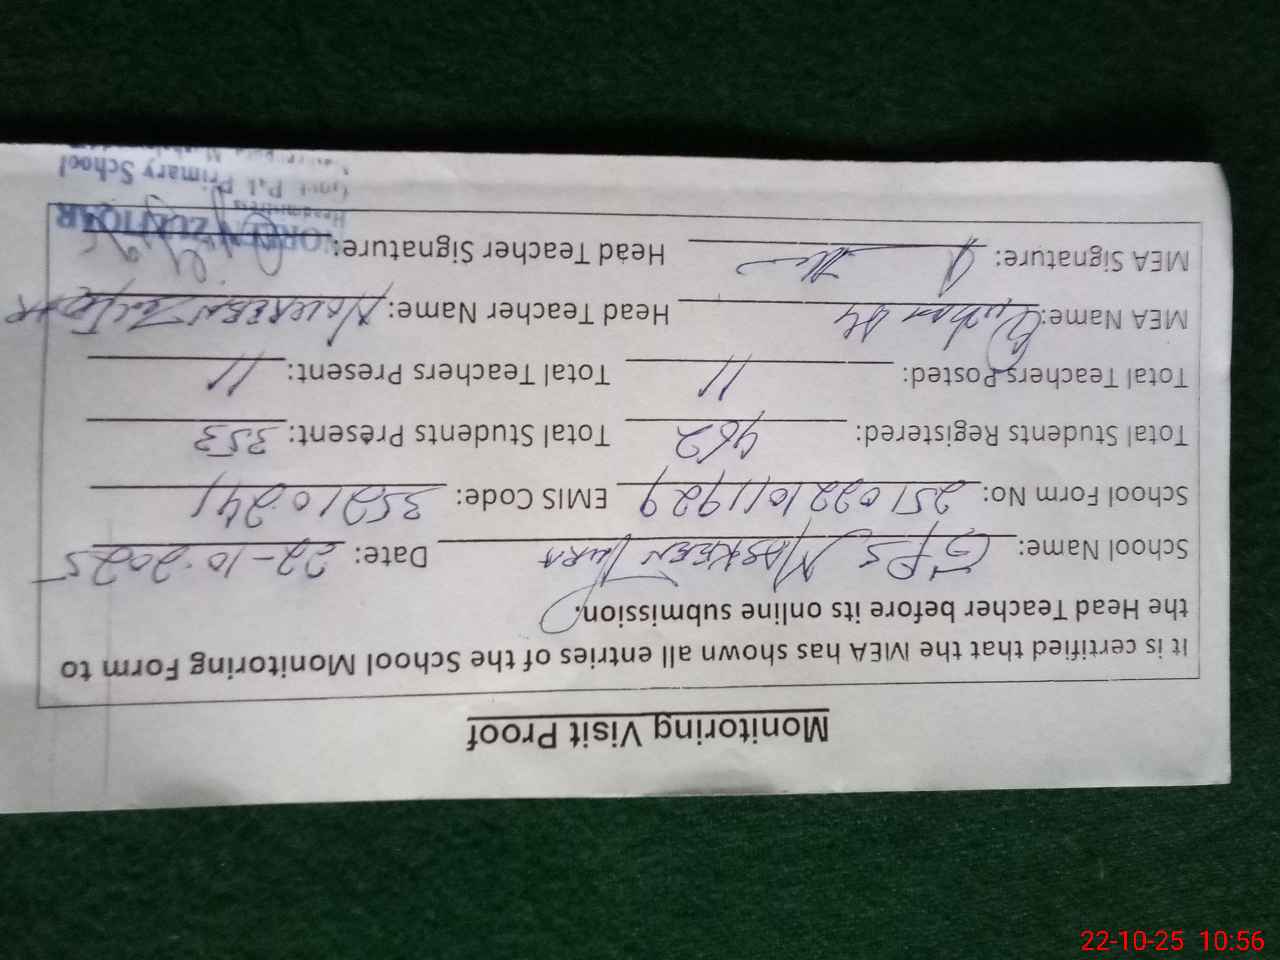 Monitoring Visit Proof
It is certified that the MEA has shown all entries of the School Monitoring Form to
the Head Teacher before its online submission.
School Name: GPS MASKEEN PURA Date: 22-10-2025
School Form No: 2510221011929 EMIS Code: 35210241
Total Students Registered: 462 Total Students Present: 353
Total Teachers Posted: 11 Total Teachers Present: 11
MEA Name: Head Teacher Name: NOUREEN Zulfiqar
MEA Signature: Head Teacher Signature:
NOREEN ZULFIQAR
Headmistress
Govt. Primary School
22-10-25 10:56